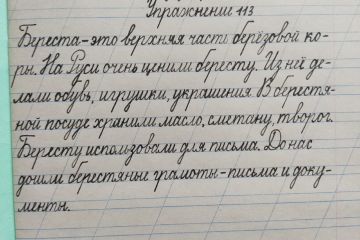 Упражнение 113
Береста – это верхняя часть берёзовой ко-
ры. На Руси очень ценили бересту. Из неё де-
лали обувь, игрушки, украшения. В берестя-
ной посуде хранили масло, сметану, творог.
Бересту использовали для письма. До нас
дошли берестяные грамоты – письма и доку-
менты.